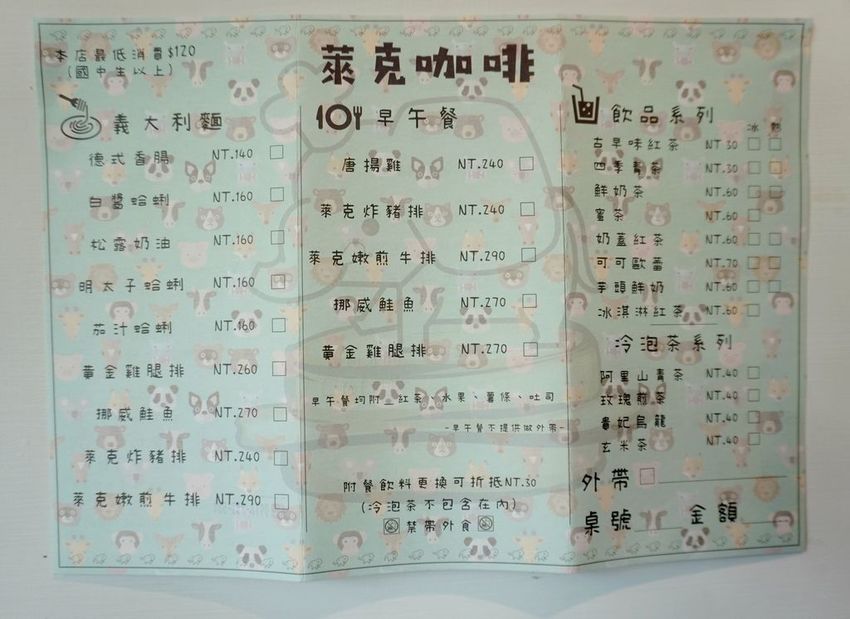 本店最低消費$120
(國中生以上)
義大利麵
德式香腸 NT.140
白醬蛤蜊 NT.160
松露奶油 NT.160
明太子蛤蜊 NT.160
茄汁蛤蜊 NT.160
黃金雞腿排 NT.260
挪威鮭魚 NT.270
萊克炸豬排 NT.240
萊克嫩煎牛排 NT.290
萊克咖啡
早午餐
唐揚雞 NT.240
萊克炸豬排 NT.240
萊克嫩煎牛排 NT.290
挪威鮭魚 NT.270
黃金雞腿排 NT.270
早午餐均附_紅茶、水果、薯條、吐司
-早午餐不提供做外帶-
附餐飲料更換可折抵NT.30
(冷泡茶不包含在內)
禁帶外食
飲品系列
冰 熱
古早味紅茶 NT.30
四季青茶 NT.30
鮮奶茶 NT.60
蜜茶 NT.60
奶蓋紅茶 NT.60
可可歐蕾 NT.70
芋頭鮮奶 NT.60
冰淇淋紅茶 NT.60
冷泡茶系列
阿里山青茶 NT.40
玫瑰煎茶 NT.40
貴妃烏龍 NT.40
玄米茶 NT.40
外帶
桌號 金額